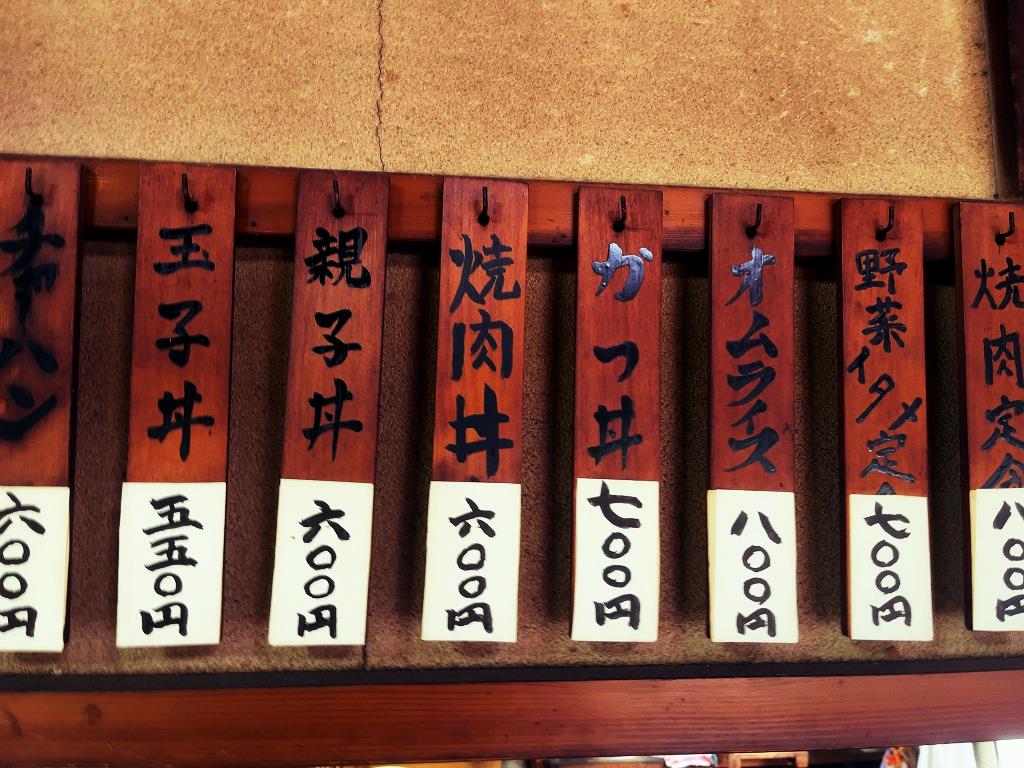 チャーハン
六〇〇円
玉子丼
五五〇円
親子丼
六〇〇円
焼肉丼
六〇〇円
かつ丼
七〇〇円
オムライス
八〇〇円
野菜イタメ定
七〇〇円
焼肉定食
八〇〇円